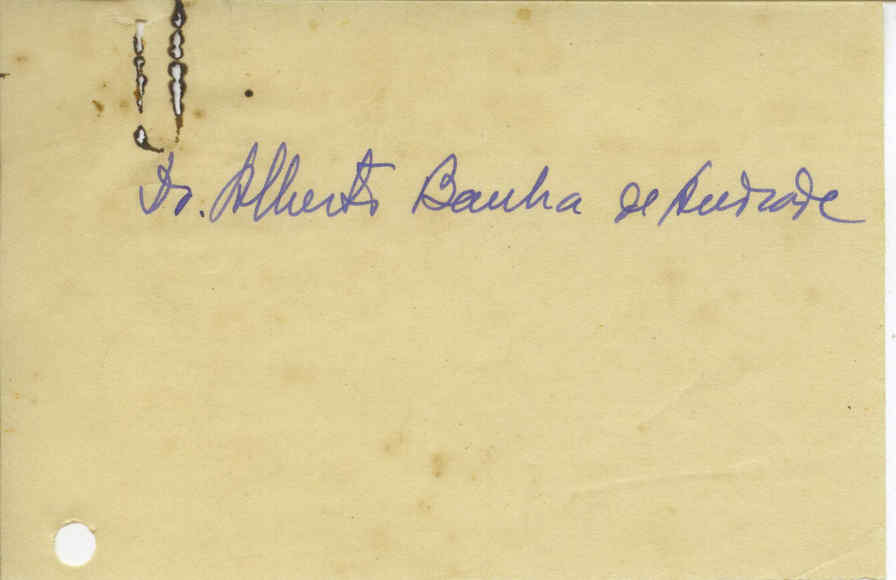 Dr. Alberto Banha de Andrade